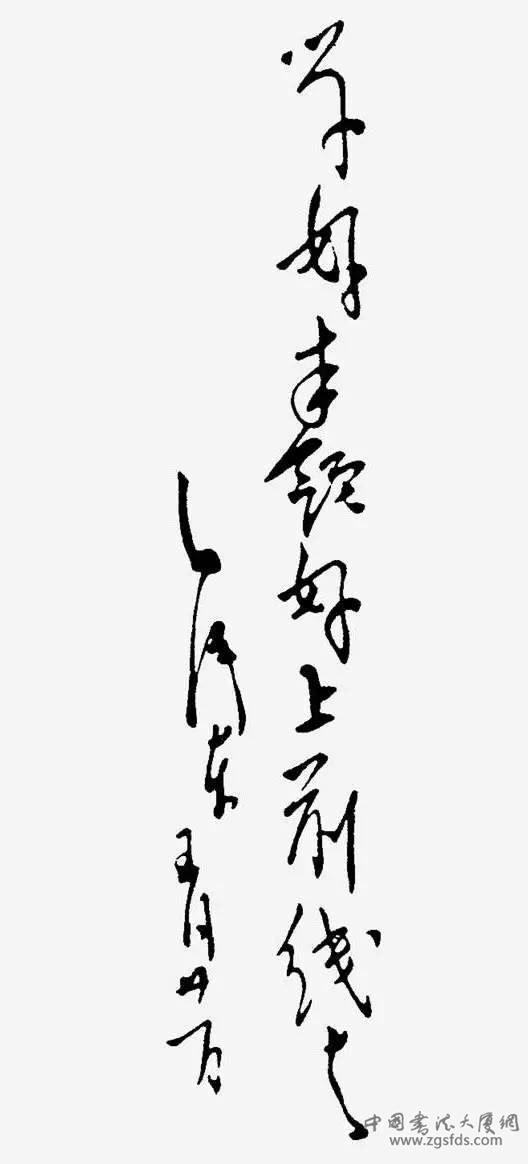 学好本领好上前线去
毛泽东 五月廿一日
中国书法大厦網
www.zgsfds.com